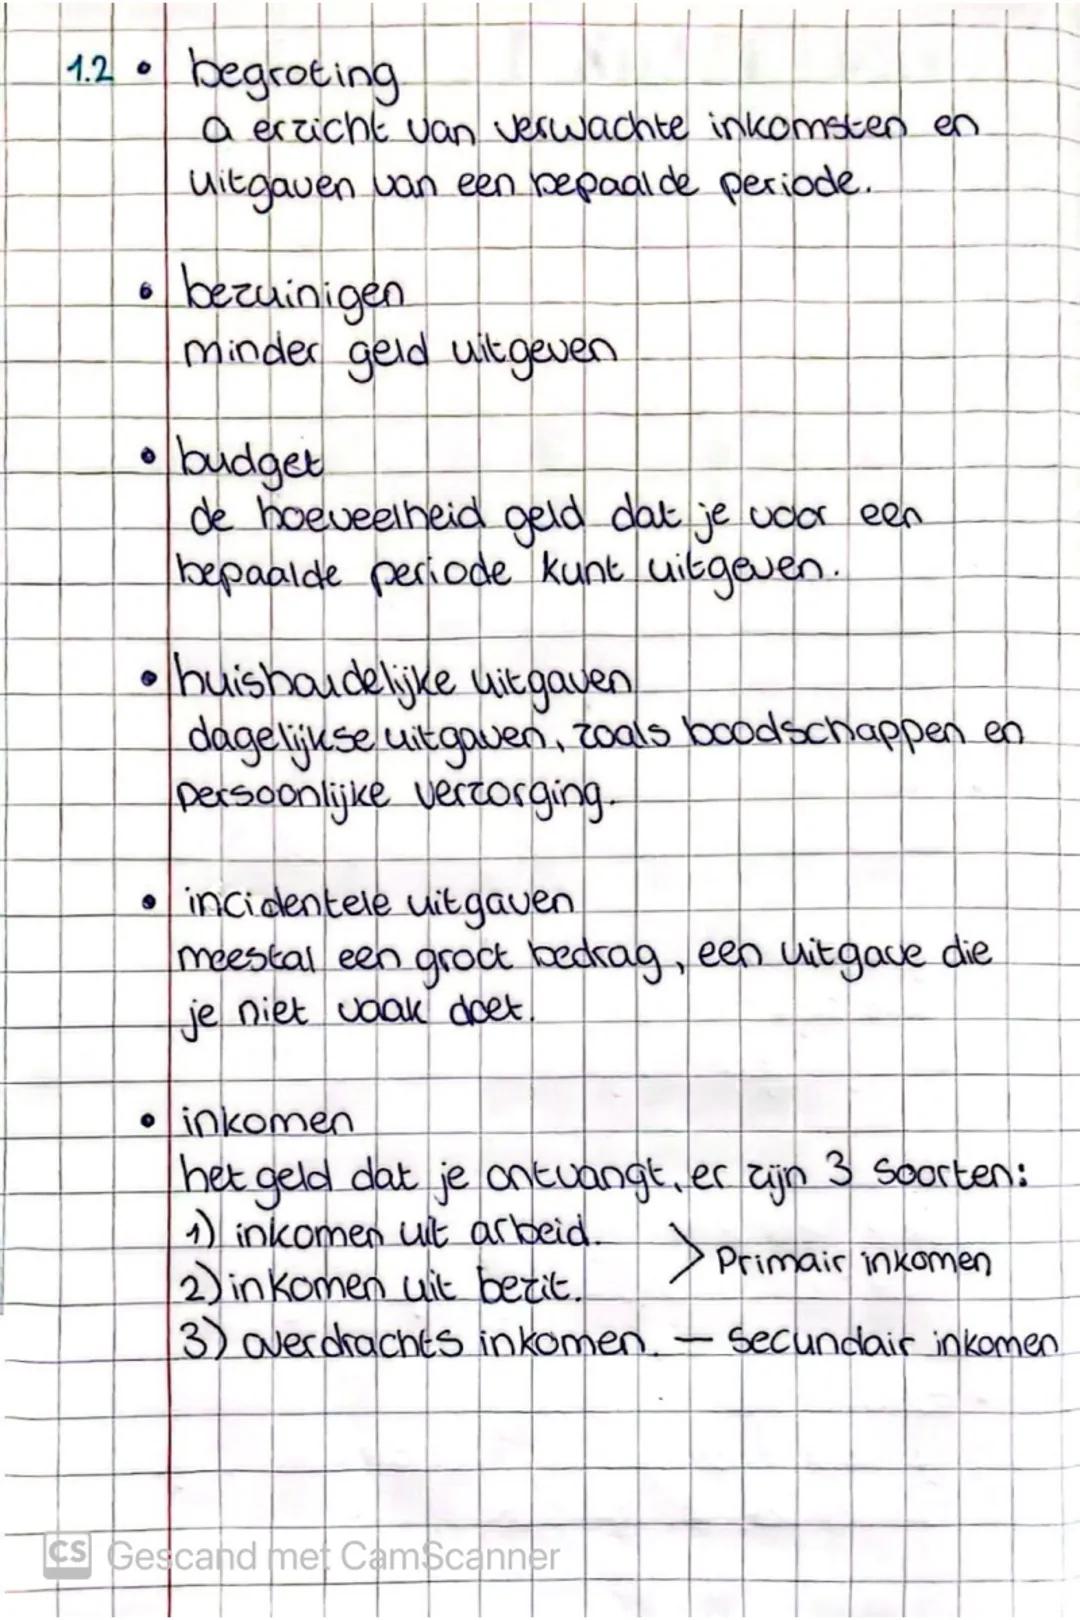 1.2 • begroting
a erzicht van verwachte inkomsten en
uitgaven van een bepaalde periode.
• bezuinigen
minder geld uitgeven
• budget
de hoeveelheid geld dat je voor een
bepaalde periode kunt uitgeven.
• huishoudelijke uitgaven
dagelijkse uitgaven, zoals boodschappen en
persoonlijke verzorging.
• incidentele uitgaven
meestal een groot bedrag, een uitgave die
je niet vaak doet.
• inkomen
het geld dat je ontvangt, er zijn 3 soorten:
1) inkomen uit arbeid.
> Primair inkomen
2) inkomen uit bezit.
3) overdrachts inkomen. — secundair inkomen
CS Gescand met CamScanner